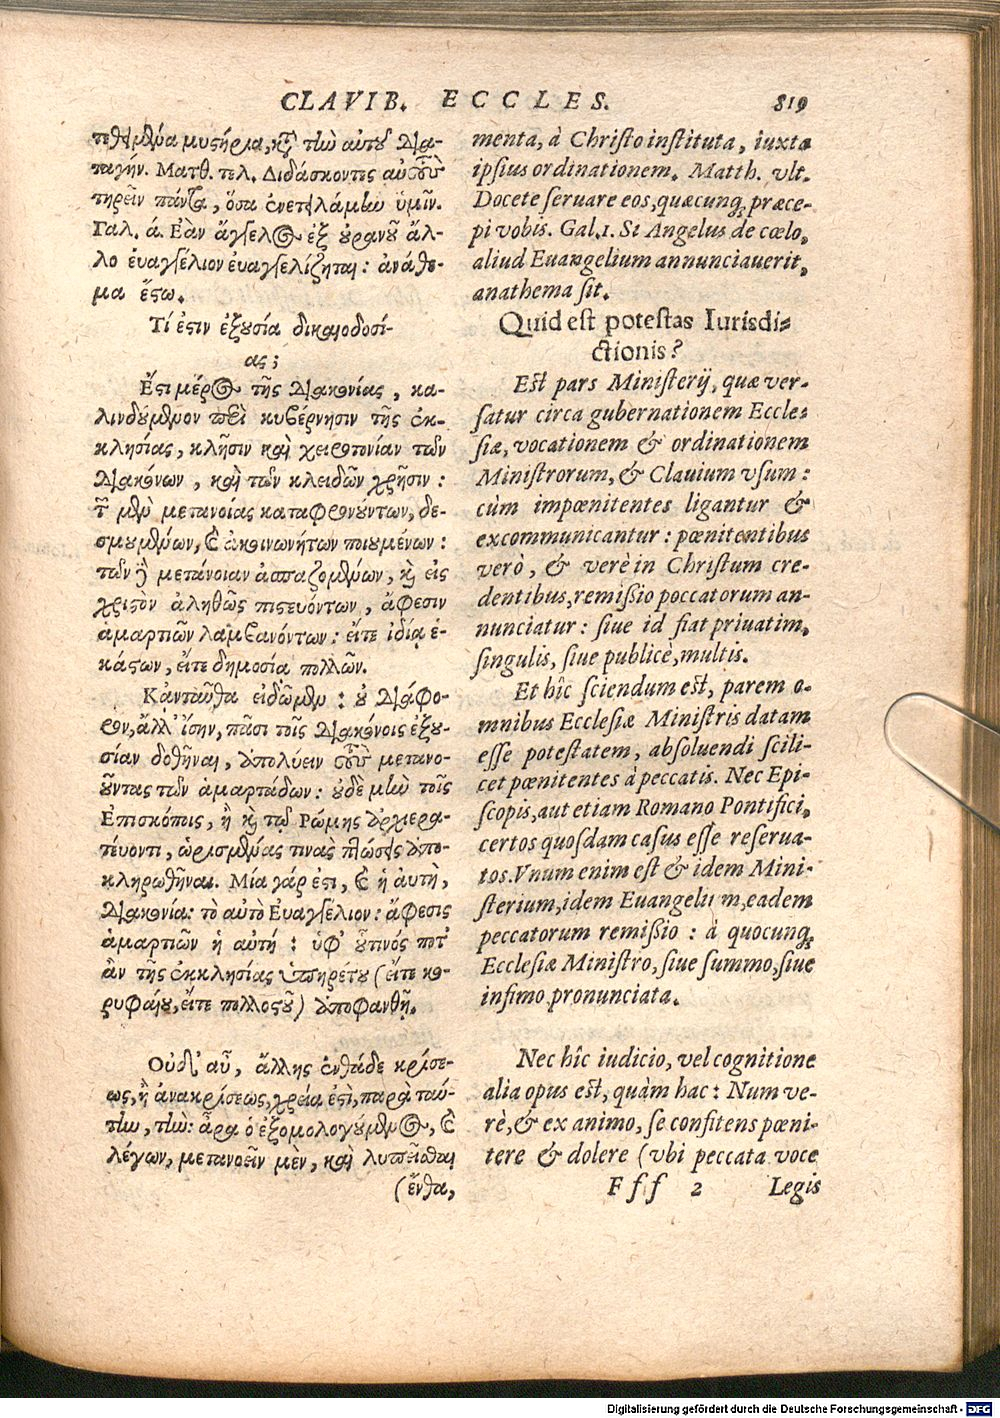 CLAVIB. ECCLES. 819
τεθειμένα μυστήρια, κατὰ τὴν αὐτοῦ δια-
ταγήν. Ματθ. τελ. Διδάσκοντες αὐτοὺς
τηρεῖν πάντα, ὅσα ἐνετειλάμην ὑμῖν.
Γαλ. ά. Ἐὰν ἄγγελος ἐξ οὐρανοῦ ἄλ-
λο ἐυαγγέλιον ἐυαγγελίζηται: ἀνάθε-
μα ἔστω.
Τί ἐστιν ἐξουσία δικαιοδοσί-
ας;
Ἔστι μέρος τῆς διακονίας, κα-
λινδούμενον περὶ κυβέρνησιν τῆς ἐκ-
κλησίας, κλῆσιν καὶ χειροτονίαν τῶν
διακόνων, καὶ τῶν κλειδῶν χρῆσιν:
τῶν μὲν μετανοίας καταφρονούντων, δε-
σμουμένων, καὶ ἀκοινωνήτων ποιουμένων:
τῶν δὲ μετάνοιαν ἀσπαζομένων, καὶ εἰς
χριστὸν ἀληθῶς πιστευόντων, ἄφεσιν
ἁμαρτιῶν λαμβανόντων: εἴτε ἰδίᾳ ἑ-
κάστων, εἴτε δημοσίᾳ πολλῶν.
Κἀνταῦθα εἰδῶμεν: οὐ διάφο-
ρον, ἀλλ' ἴσην, πᾶσι τοῖς διακόνοις ἐξου-
σίαν δοθῆναι, ἀπολύειν τοὺς μετανο-
οῦντας τῶν ἁμαρτάδων: οὐδὲ μὴν τοῖς
Ἐπισκόποις, ἢ καὶ τῷ Ῥώμης ἀρχιερα-
τεύοντι, ὡρισμένας τινας πτώσεις ἀπο-
κληρωθῆναι. Μία γάρ ἐστι, καὶ ἡ ἀυτὴ,
διακονία: τὸ αὐτὸ Ἐυαγγέλιον: ἄφεσις
ἁμαρτιῶν ἡ αὐτή: ὑφ' οὗτινός ποτ'
ἂν τῆς ἐκκλησίας ὑπηρέτου (εἴτε κο-
ρυφαίου, εἴτε πολλοστοῦ) ἀποφανθῇ.
Οὐδ' αὖ, ἄλλης ἐνθάδε κρίσε-
ως, ἢ ἀνακρίσεως, χρεία ἐστὶ, παρὰ ταύ-
την, τὴν: ἆρα ὁ ἐξομολογούμενος, καὶ
λέγων, μετανοεῖν μὲν, καὶ λυπεῖσθαι
(ἔνθα,
menta, à Christo instituta, iuxta
ipsius ordinationem. Matth. vlt.
Docete seruare eos, quæcunq; præce-
pi vobis. Gal. 1. Si Angelus de cœlo,
aliud Euangelium annunciauerit,
anathema sit.
Quid est potestas Iurisdi-
ctionis?
Est pars Ministerij, quæ ver-
satur circa gubernationem Eccle-
siæ, vocationem & ordinationem
Ministrorum, & Clauium vsum:
cùm impœnitentes ligantur &
excommunicantur: pœnitentibus
verò, & verè in Christum cre-
dentibus, remissio poccatorum an-
nunciatur: siue id fiat priuatim,
singulis, siue publicè, multis.
Et hîc sciendum est, parem o-
mnibus Ecclesiæ Ministris datam
esse potestatem, absoluendi scili-
cet pœnitentes à peccatis. Nec Epi-
scopis, aut etiam Romano Pontifici,
certos quosdam casus esse reserua-
tos. Vnum enim est & idem Mini-
sterium, idem Euangelium, eadem
peccatorum remissio: à quocunq;
Ecclesiæ Ministro, siue summo, siue
infimo pronunciata.
Nec hîc iudicio, vel cognitione
alia opus est, quàm hac: Num ve-
rè, & ex animo, se confitens pœni-
tere & dolere (vbi peccata voce
Fff 2 Legis
Digitalisierung gefördert durch die Deutsche Forschungsgemeinschaft - DFG